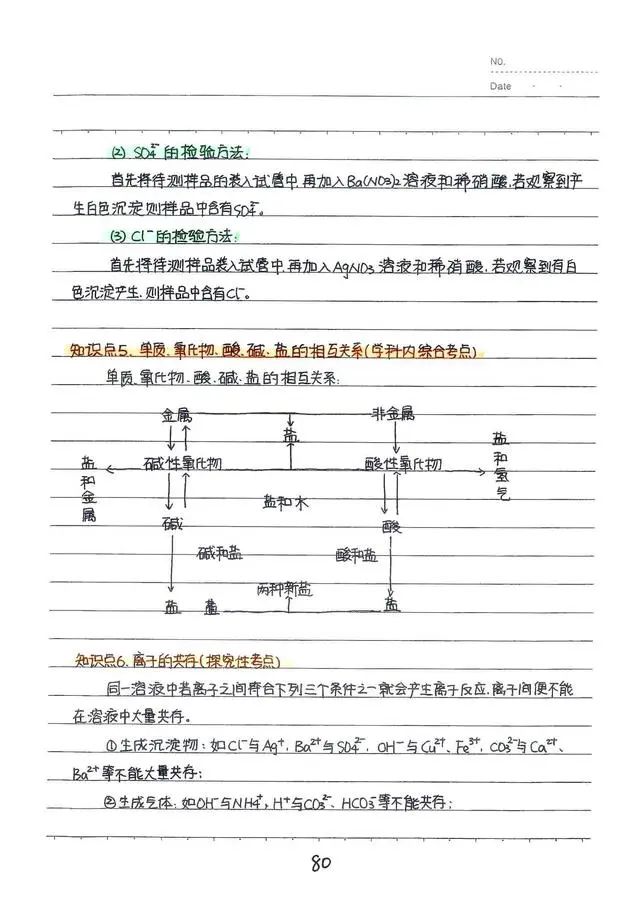 No.
Date · ·
(2) SO₄²⁻的检验方法:
首先将待测样品的装入试管中,再加入Ba(NO3)2溶液和稀硝酸,若观察到产
生白色沉淀则样品中含有SO₄²⁻。
(3) Cl⁻的检验方法:
首先将待测样品装入试管中,再加入AgNO3溶液和稀硝酸,若观察到有白
色沉淀产生,则样品中含有Cl⁻。
知识点5、单质、氧化物、酸、碱、盐的相互关系(学科内综合考点)
单质、氧化物、酸、碱、盐的相互关系:
金属 非金属
盐
盐和金属 碱性氧化物 酸性氧化物 盐和氢气
盐和水
碱 酸
碱和盐 酸和盐
两种新盐
盐 盐 盐
知识点6、离子的共存(探究性考点)
同一溶液中若离子之间符合下列三个条件之一就会产生离子反应,离子间便不能
在溶液中大量共存。
①生成沉淀物:如Cl⁻与Ag⁺、Ba²⁺与SO₄²⁻、OH⁻与Cu²⁺、Fe³⁺、CO₃²⁻与Ca²⁺、
Ba²⁺等不能大量共存;
②生成气体:如OH⁻与NH₄⁺,H⁺与CO₃²⁻、HCO₃⁻等不能共存;
80